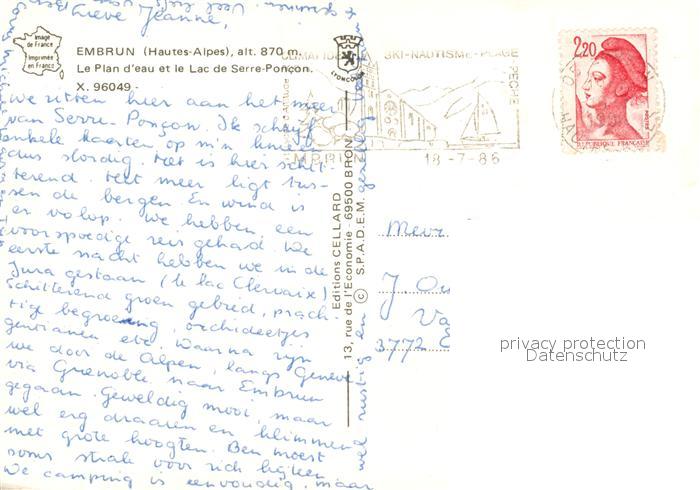 Lieve Jeanne,
Image
de France
Imprimée
en France
EMBRUN (Hautes-Alpes), alt. 870 m.
Le Plan d'eau et le Lac de Serre-Ponçon.
X. 96049
LYONCOLOR
SKI-NAUTISME-PLAGE
PECHE
EMBRUN
18-7-86
2,20
REPUBLIQUE FRANÇAISE
we zitten hier aan het meer
van Serre-Ponçon. Ik schrijf
enkele kaarten op m'n knie
dus slordig. Het is hier schit-
terend. Het meer ligt tus-
sen de bergen. En wind is
er volop. We hebben een
voorspoedige reis gehad. De
eerste nacht hebben we in de
Jura gestaan (le lac Clervaix)
Schitterend groen gebied, prach-
tige begroeiing, orchideetjes
gentianen etc. Daarna zijn
we door de Alpen, langs Geneve
via Grenoble naar Embrun
gegaan. Geweldig mooi, maar
wel erg draaien en klimmen
met grote hoogten. Ben moest
soms strak voor zich kijken
De camping is eenvoudig, maar
wel rustig en gezellig
Editions CELLARD
13, rue de l'Economie - 69500 BRON
© S.P.A.D.E.M.
Mevr
J. Ou
Va
3772
privacy protection
Datenschutz